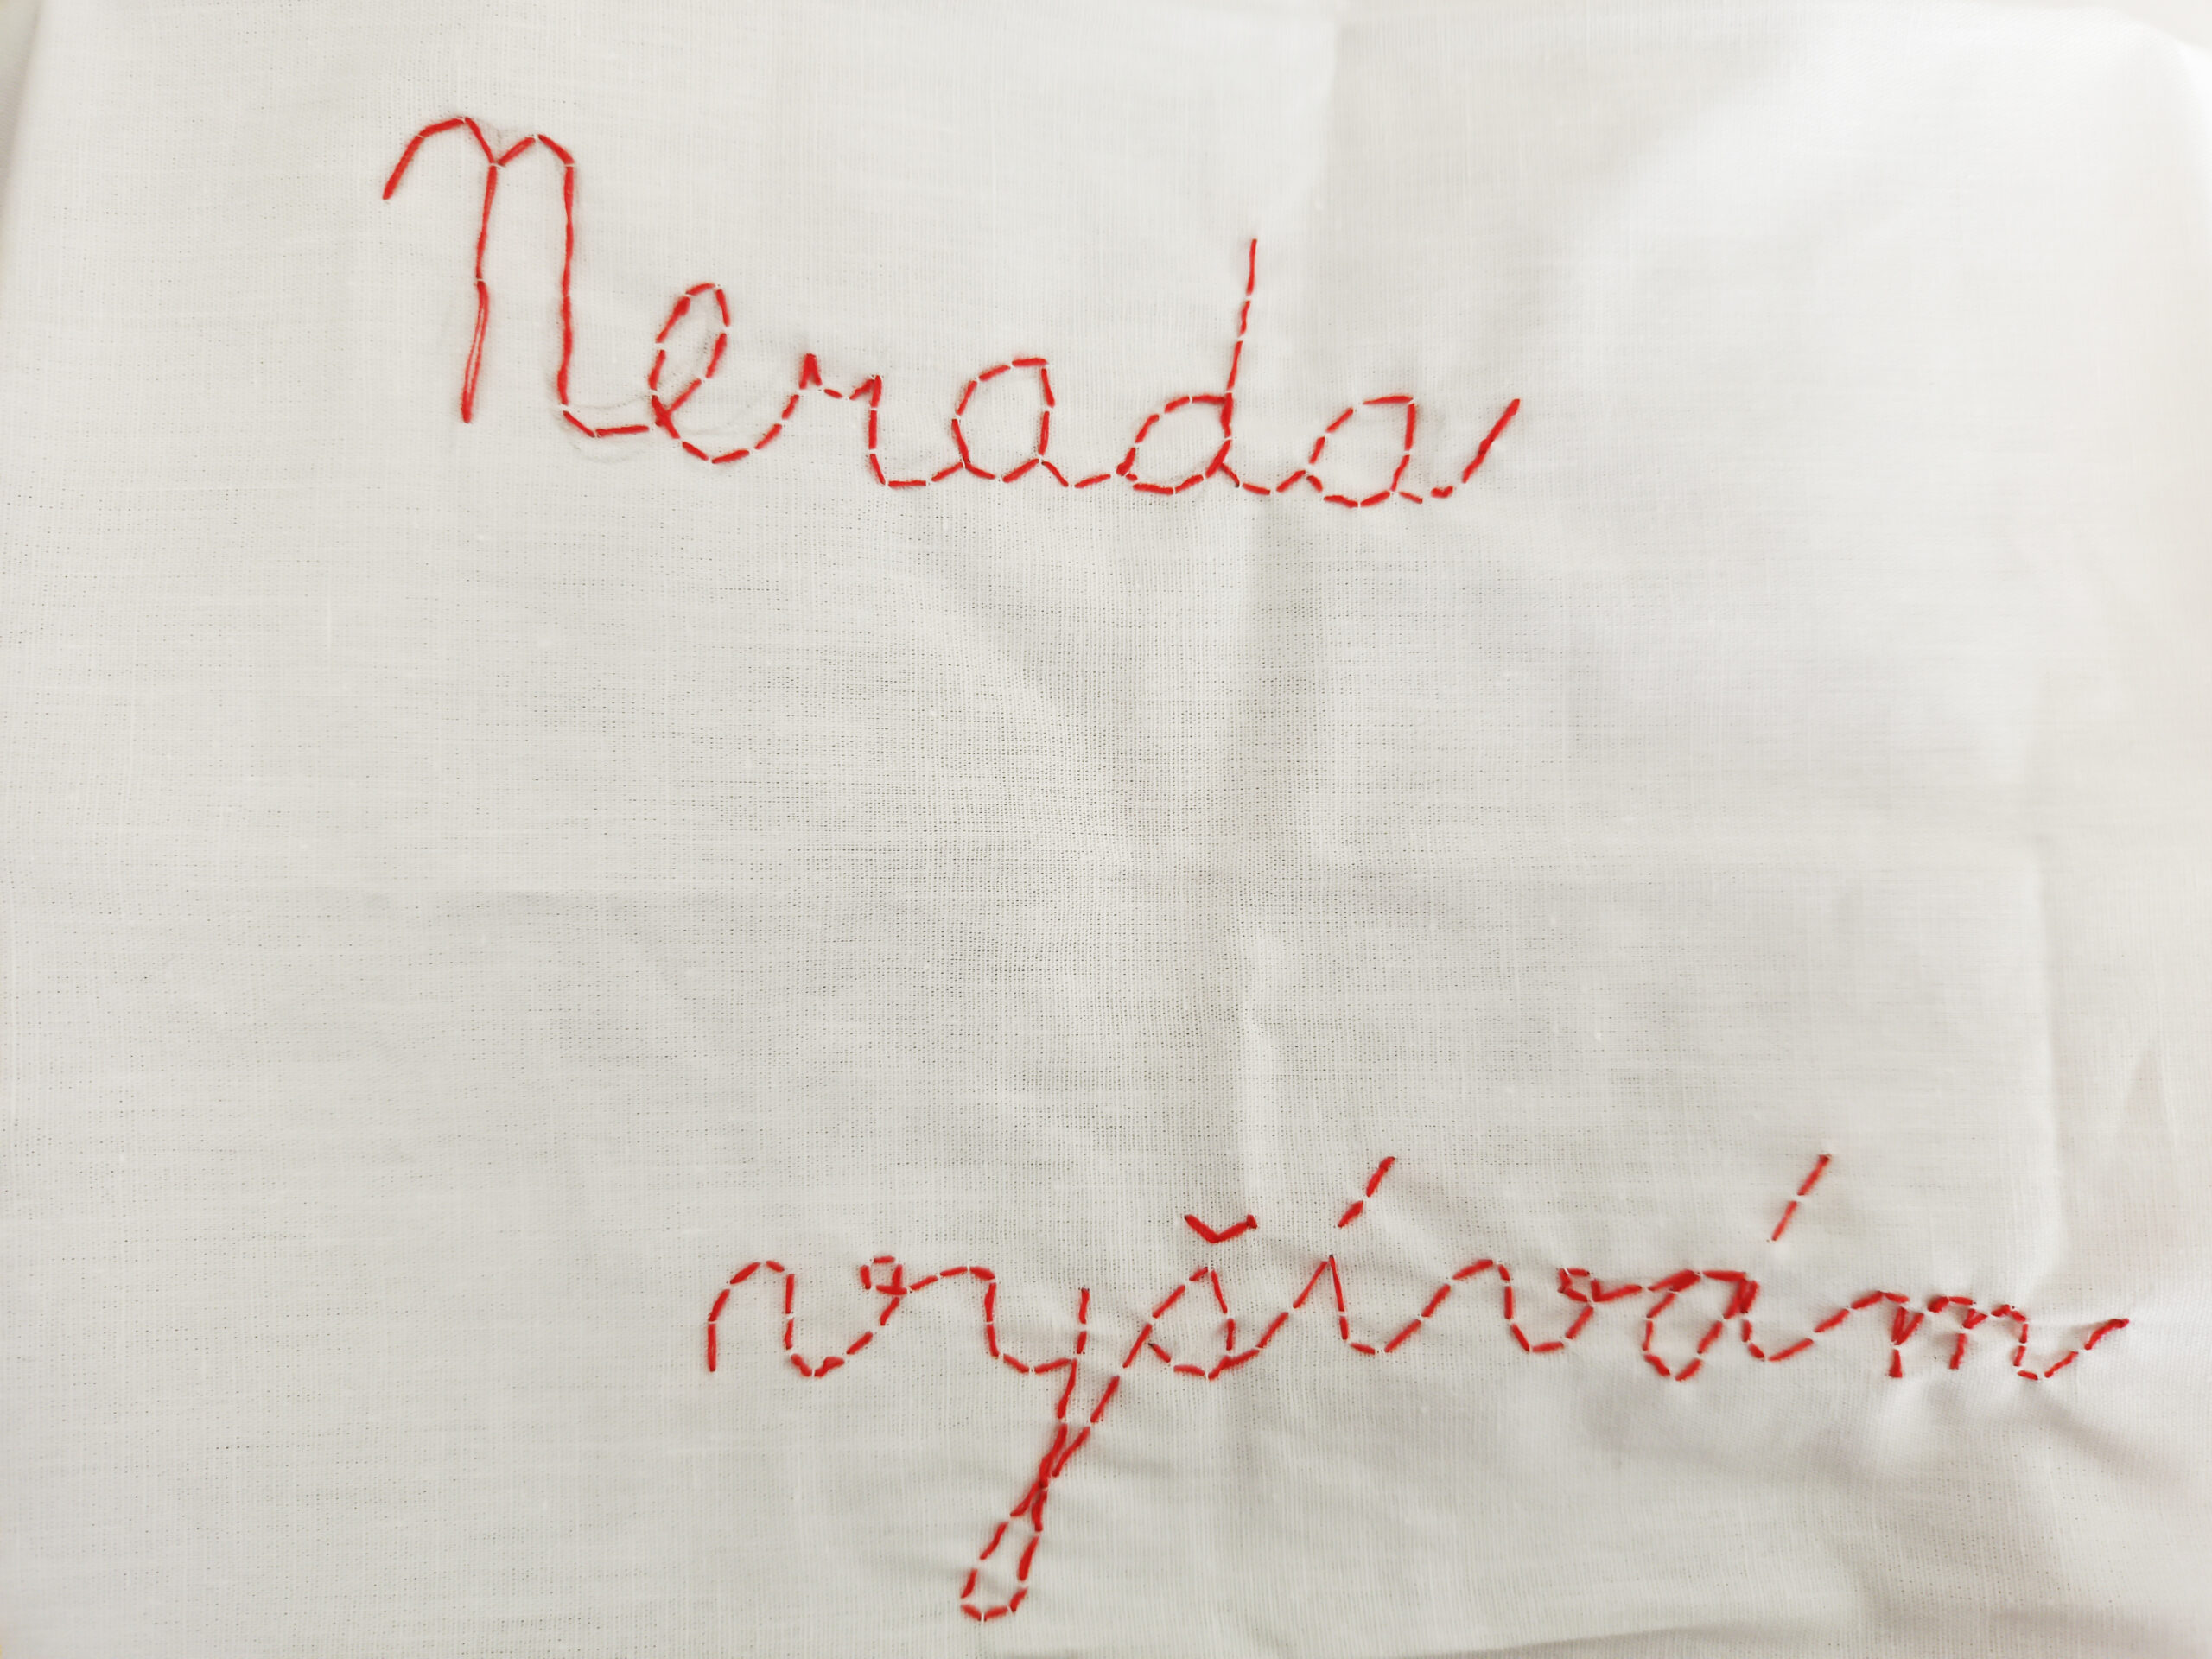 Nerada
vyšívám